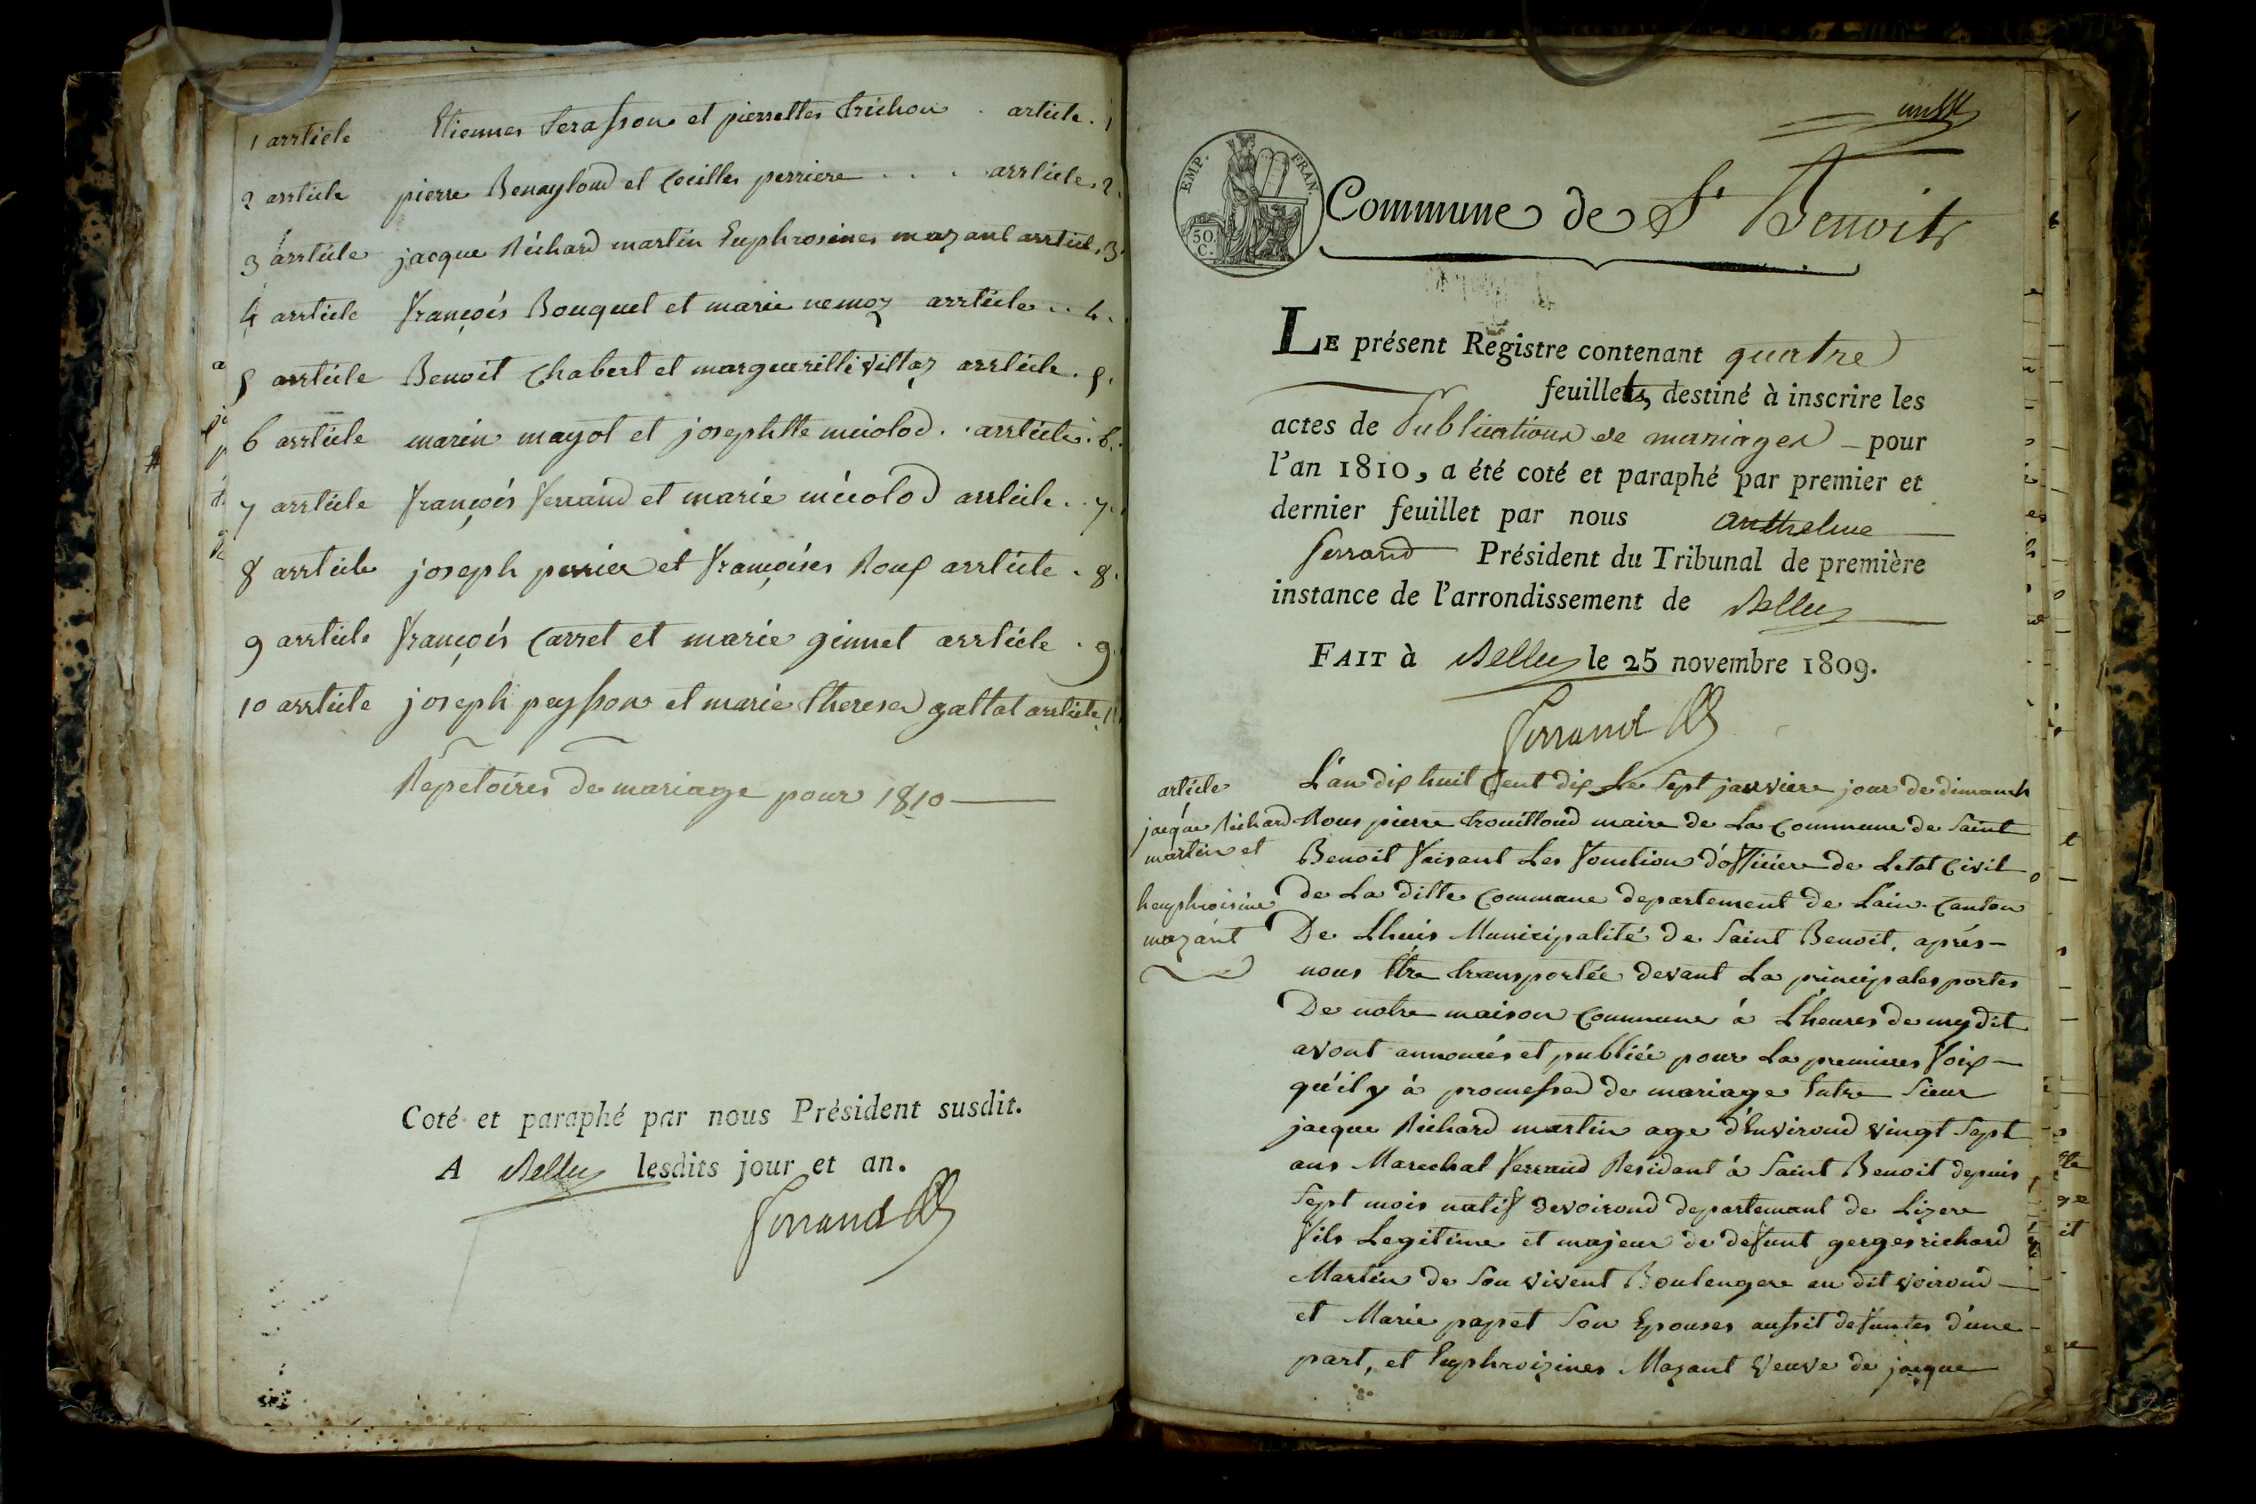 1 arrticle Etiennes Serasson et pierrettes trichon . article . 1
2 arrticle pierre Benaytond et Cecilles perriere . . . arrticle . 2
3 arrticle jacque Richard martin Euphrosines mazant arrticl . 3
4 arrticle françois Bouquet et marie nemoz arrticle . . 4 .
5 arrticle Benoit Chabert et margueritte villaz arrticle . 5 .
6 arrticle marin mayot et josephtte miolod . . arrticle . 6 .
7 arrticle françois ferrand et marie miolod arrticle . . 7 .
8 arrticle joseph perrier et françoises Roux arrticle . 8 .
9 arrticle françois Carret et marie ginnet arrticle . 9 .
10 arrticle joseph peysson et marie therese gallat arrticle
Repetoires de mariage pour 1810
Coté et paraphé par nous Président susdit.
A Belley lesdits jour et an.
ferrand
EMP. FRAN.
50. C.
Commune de St Benoit
LE présent Registre contenant quatre
feuillets, destiné à inscrire les
actes de Publications de mariages pour
l'an 1810, a été coté et paraphé par premier et
dernier feuillet par nous anthelme
ferrand Président du Tribunal de première
instance de l'arrondissement de Belley
FAIT à Belley le 25 novembre 1809.
ferrand
article
jacque Richard
martin et
heuphroisine
mazant
L'an dix huit Cent dix Le Sept janviere jour de dimanch
Nous pierre trouilloud maire de La Commune de Saint
Benoit faisant Les fonction d'officiere de Letat Civil
de La ditte Commune departement de Lain Canton
De Lhuis Municipalité de Saint Benoit, aprés
nous ttre transportée devant La principales portes
De notre maison Commune à L'heures de mydit
avont annoncés et publiée pour La premieres foix
qu'il y à promesses de mariage Entre Sieur
jacque Richard martin age d'Environd vingt Sept
ans Marechal ferrand Residant à Saint Benoit depuis
Sept mois natif de voirond departemant de Lizere
fils Legitime et majeur de defunt gerges richard
Martin de Son vivent Boulengere au dit voirond
et Marie papet Son Epouses aussit defuntes d'une
part, et Euphroizines Mazant veuve de jacque